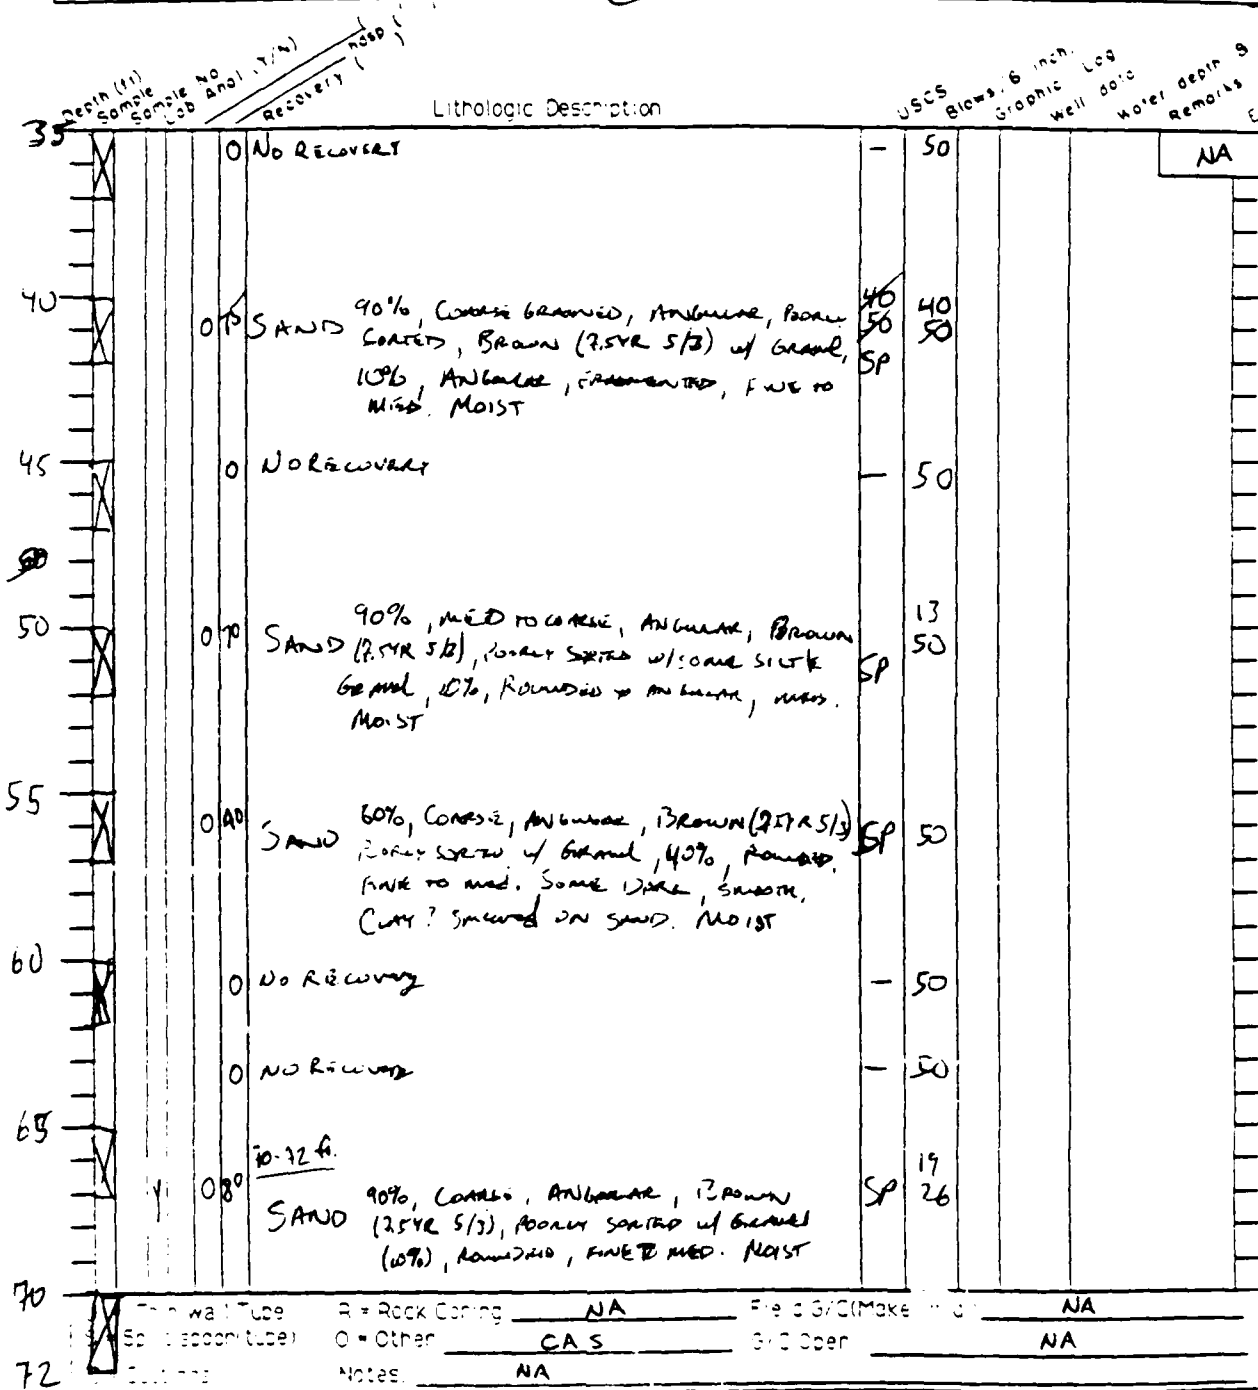 Depth (ft) Sample Sample No Lab Anal. (Y/N) Recovery ( ) Lithologic Description USCS Blows/6 inch. Graphic Log Well data Water depth Remarks
35 0 NO RECOVERY - 50 NA
40 40 40
0 SAND 90%, COARSE GRAINED, ANGULAR, POORLY 50 50
SORTED, BROWN (7.5YR 5/3) w/ GRAVEL, SP
10%, ANGULAR, FRAGMENTED, FINE TO
MED. MOIST
45 0 NO RECOVERY - 50
50 90%, MED TO COARSE, ANGULAR, BROWN 13
0 SAND (7.5YR 5/3), POORLY SORTED w/ SOME SILT & SP 50
GRAVEL, 10%, ROUNDED TO ANGULAR, MED.
MOIST
55 0 SAND 60%, COARSE, ANGULAR, BROWN (7.5YR 5/3) SP 50
POORLY SORTED w/ GRAVEL, 40%, ROUNDED,
FINE TO MED. SOME DARK, SMOOTH,
CLAY? SMEARED ON SAND. MOIST
60 0 NO RECOVERY - 50
0 NO RECOVERY - 50
65
70-72 ft. 19
Y 0 SAND 90%, COARSE, ANGULAR, BROWN SP 26
(7.5YR 5/3), POORLY SORTED w/ GRAVEL
(10%), ROUNDED, FINE TO MED. MOIST
70 Thin wall Tube R = Rock Coring NA Field G/C (Make NA
Split spoon (tube) O = Other CAS G/C Oper NA
72 Cuttings Notes: NA